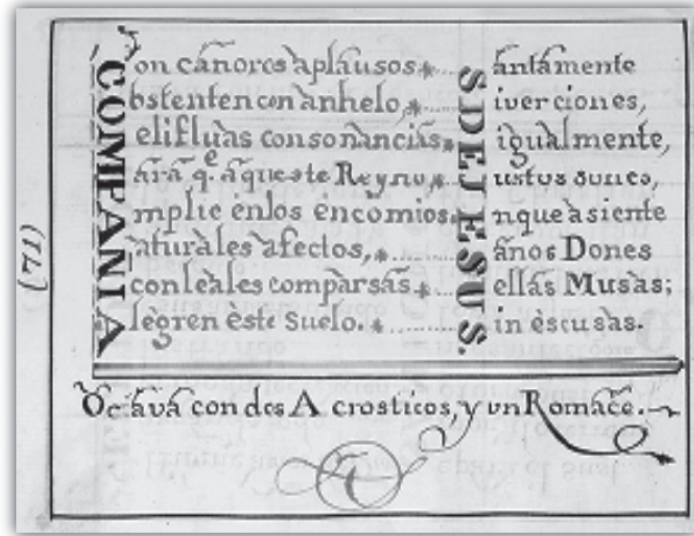 Con cañoros aplausos, Santamente
Obstenten con anhelo, Diverciones,
Melifluas consonancias, E igualmente,
Para qe. aqueste Reyno, Justos sones,
Amplie enlos encòmios, Enque àsiente
Naturàles àfectos, Sanos Dones
I conleàles comparsas Uellas Musas;
Alègren èste Suelo. Sin èscusas.
Octava con dos Acrosticos, y un Romaçe.
(171)